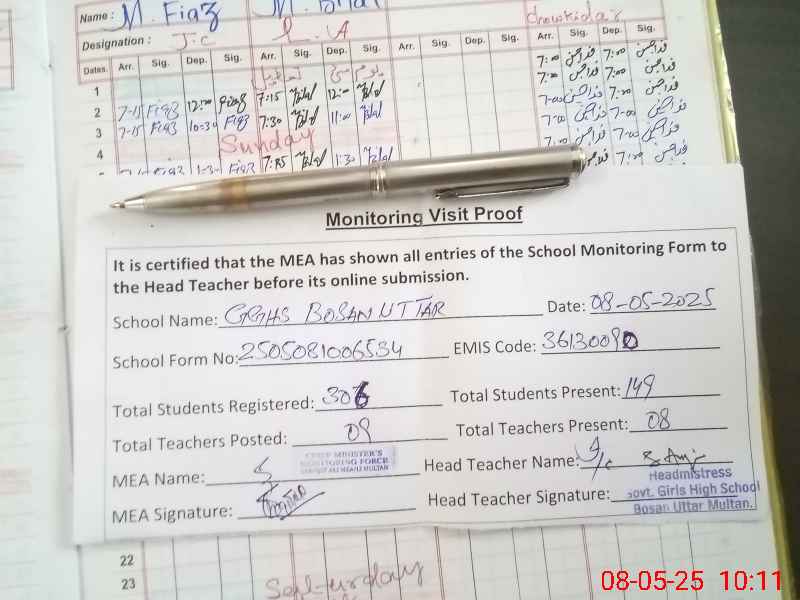 Name : M. Fiaz
Designation : J.C L.A Chowkidar
Dates. Arr. Sig. Dep. Sig. Arr. Sig. Dep. Sig. Arr. Sig. Dep. Sig. Arr. Sig. Dep. Sig.
1 7:00 7:00
2 7-15 Fiaz 12:00 Fiaz 7:15 Bilal 12:00 Bilal
3 7-15 Fiaz 10-30 Fiaz 7:30 Bilal 11:00 Bilal 7-00 7-00
4 Sunday
Fiaz 1-30 Fiaz Bilal 1:30 Bilal 7:00
Monitoring Visit Proof
It is certified that the MEA has shown all entries of the School Monitoring Form to
the Head Teacher before its online submission.
School Name: GGHS BOSAN UTTAR Date: 08-05-2025
School Form No: 2505081006534 EMIS Code: 36130090
Total Students Registered: 306 Total Students Present: 149
Total Teachers Posted: 09 Total Teachers Present: 08
CHIEF MINISTER'S
MONITORING FORCE
MEA Name: Head Teacher Name:
Headmistress
MEA Signature: Head Teacher Signature:
Govt. Girls High School
Bosan Uttar Multan.
22
23
Saturday
08-05-25 10:11